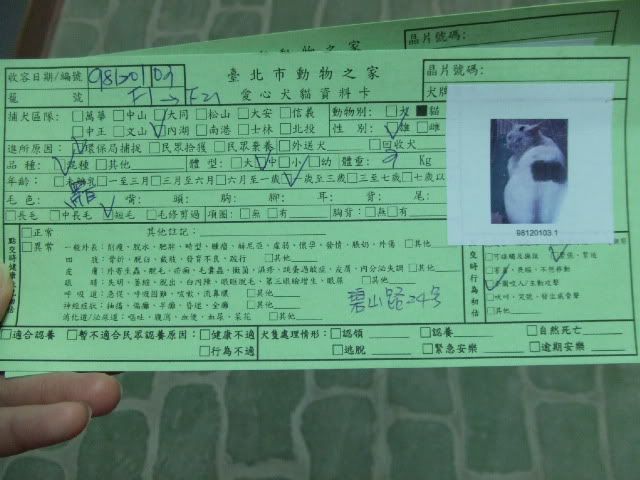 晶片號碼:
收容日期/編號 98120103
臺北市動物之家
晶片號碼:
籠 號 F1→F21
愛心犬貓資料卡
犬牌
捕犬區隊: □萬華 □中山 ☑大同 □松山 □大安 □信義 動物別: □犬 ■貓
□中正 □文山 ☑內湖 □南港 □士林 □北投 性 別: ☑雄 □雌
進所原因: ☑環保局捕捉 □民眾拾獲 □民眾棄養 □外送犬 □回收犬
品 種: ☑混種 □其他 體 型: □大 ☑中 □小 □幼 體重: Kg
年齡: □未離乳 □一至三月 □三月至六月 □六月至一歲 ☑一歲至三歲 □三至七歲 □七歲以
毛 色: 嘴: 頭: 胸: 腳: 耳: 背: 尾:
□長毛 □中長毛 ☑短毛 □毛修剪過 項圈: □無 □有 胸背: □無 □有
98120103.1
點交時健康狀況初估
□正常 其他註記:
□異常 一般外表: □削瘦、脫水、肥胖、畸型、腫瘤、赫尼亞、虛弱、懷孕、發情、脹奶、外傷 □其他
四 肢: □骨折、脫臼、截肢、發育不良、跛行 □其他
皮 膚: □外寄生蟲、脫毛、疥癬、毛囊蟲、黴菌、濕疹、跳蚤過敏症、皮屑、內分泌失調 □其他
眼 睛: □失明、萎縮、脫出、白內障、眼瞼脫毛、第三眼瞼增生、眼屎 □其他
呼 吸 道: □急促、呼吸困難、咳嗽、流鼻膿 □其他
消化道/泌尿道: □嘔吐、腹瀉、血便、血尿、菜花 □其他
神經症狀: □抽搐、偏癱、半癱、昏迷、全癱 □其他
碧山路24号
交時行為初估
□可碰觸及撫摸
□吠叫、哭號、發出威脅聲
□其他
□適合認養 □暫不適合民眾認養原因: □健康不適 犬隻處理情形: □認領 □認養 □自然死亡
□行為不適 □逃脫 □緊急安樂 □逾期安樂